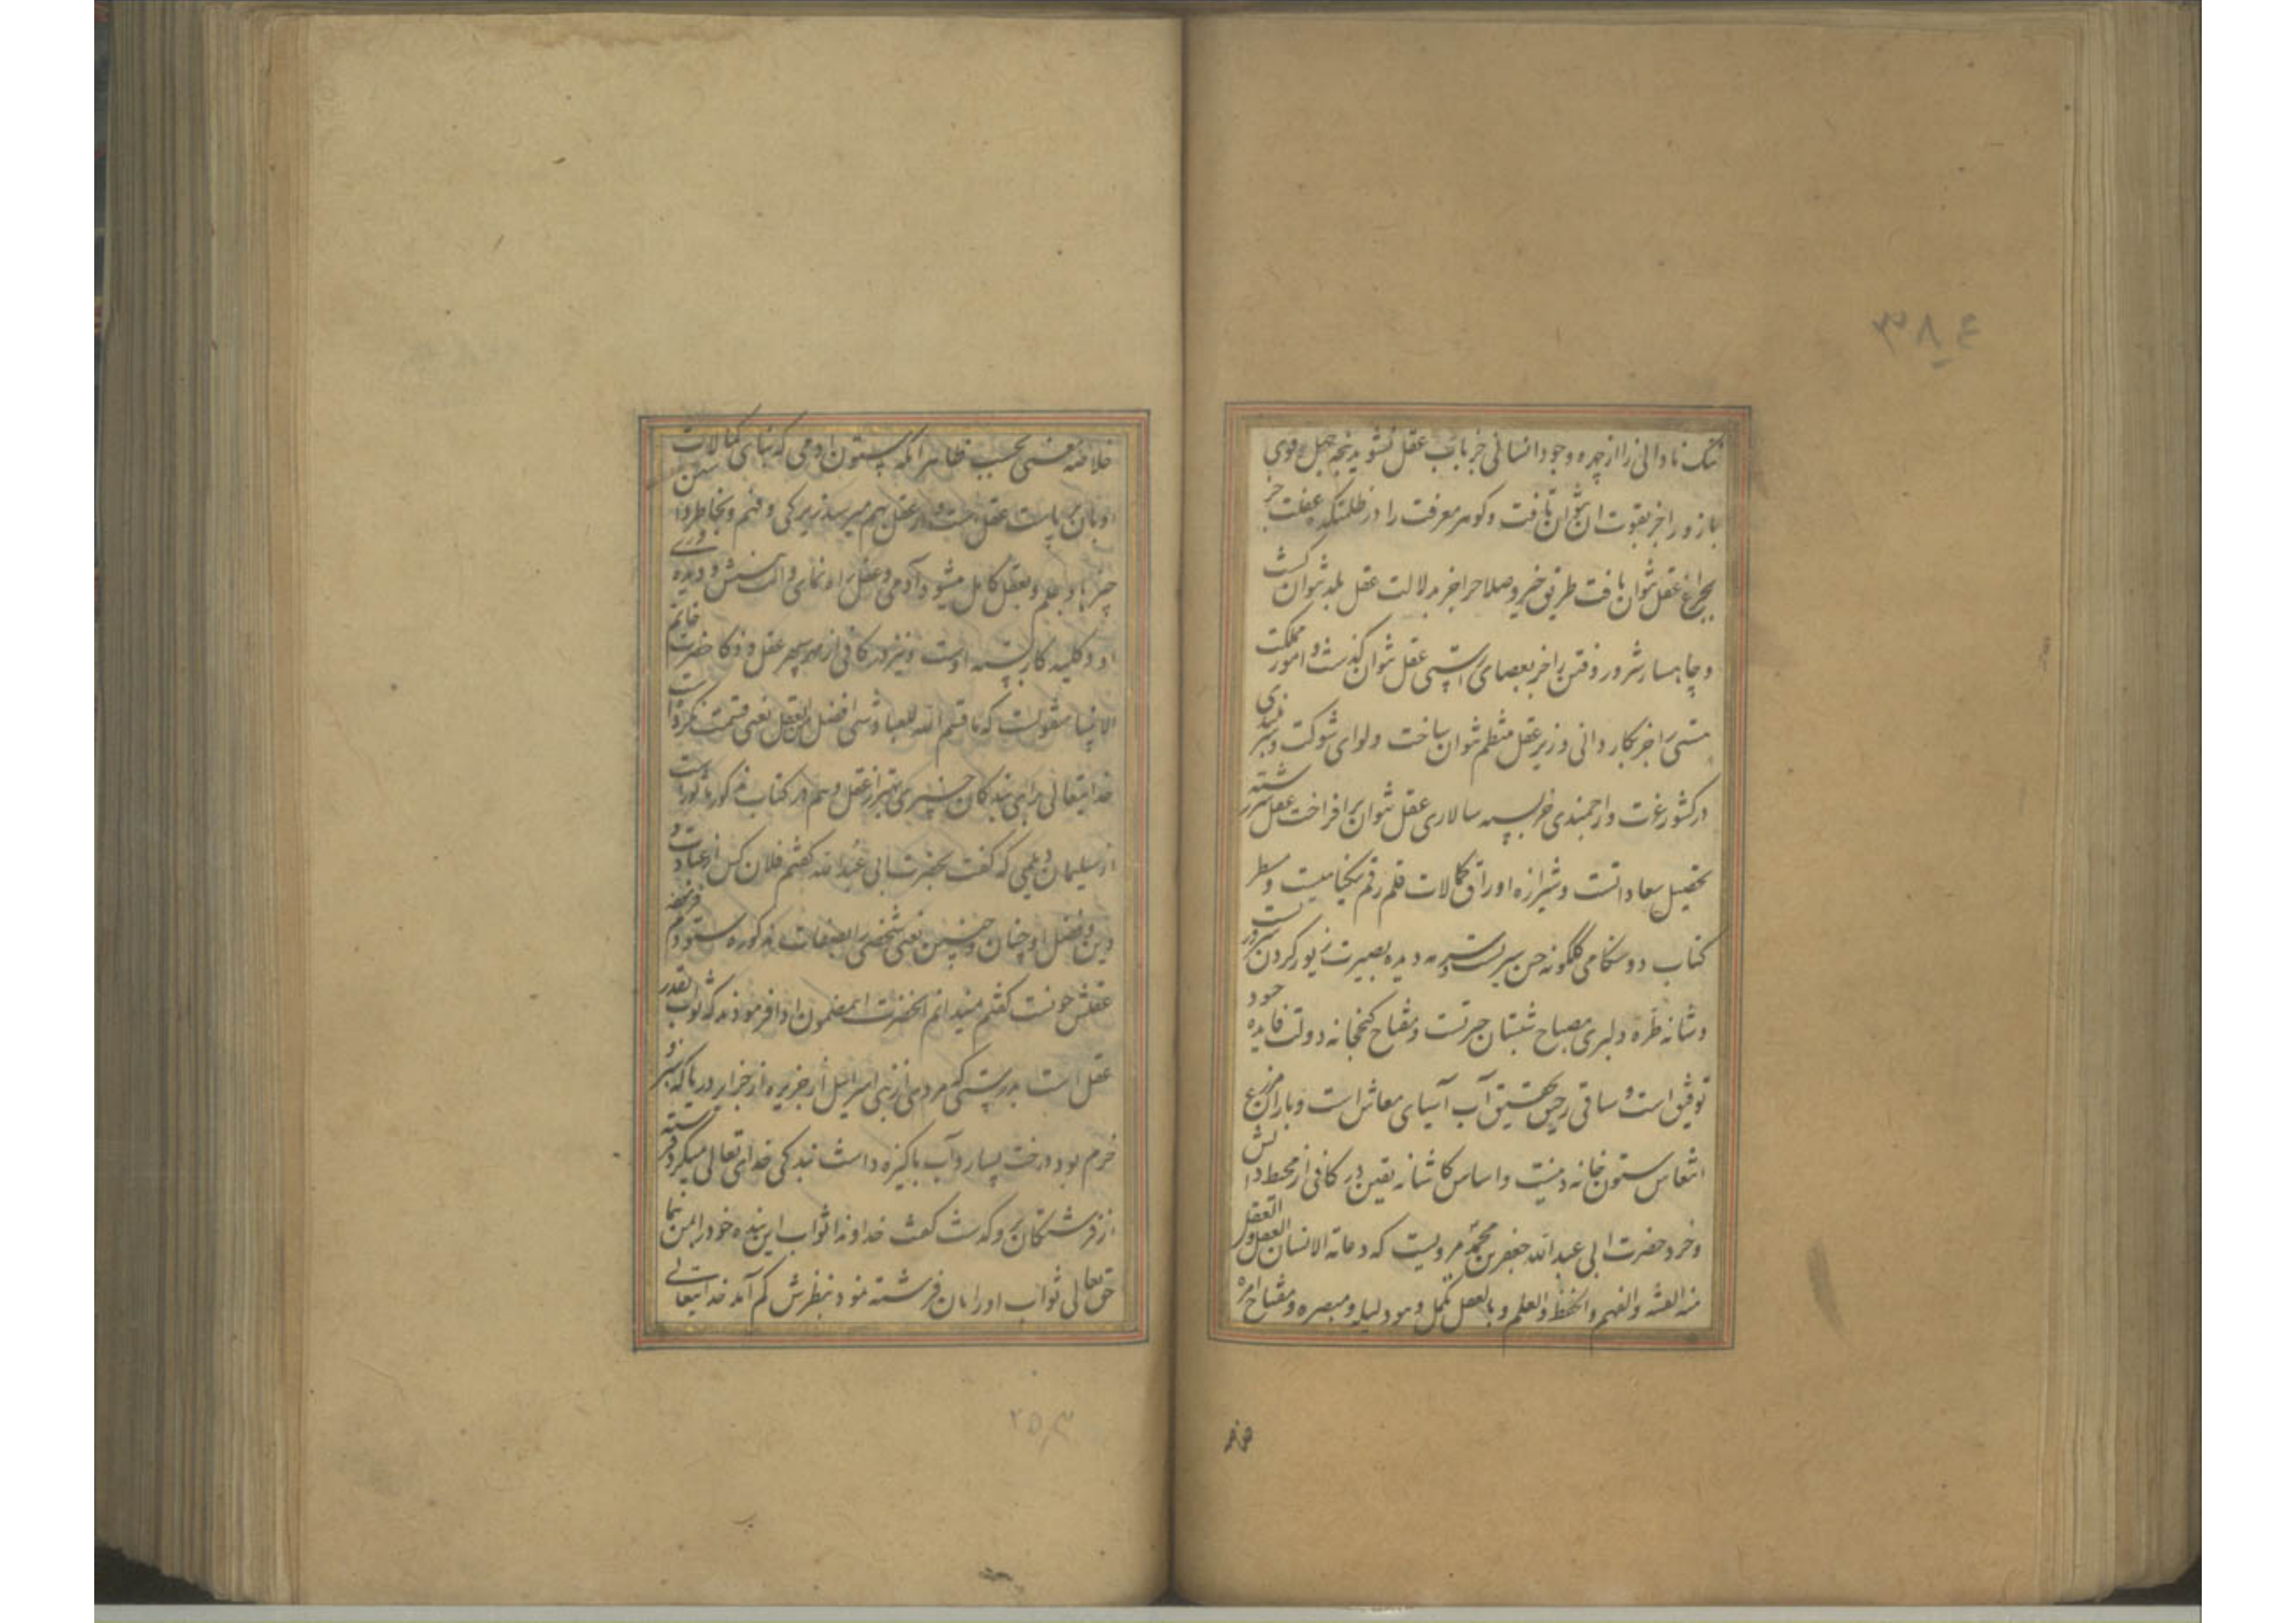 ۳۸۴
ننگ نادانی را از چهره وجود انسانی جز بآب عقل نشوید پنجه جهل قوی
بازو را جز بقوت ان نتوان تافت و گوهر معرفت را در ظلمتکده غفلت جز
بچراغ عقل نتوان یافت طریق خیر و صلاح را جز بدلالت عقل بلد نتوان گشت
و چاهسار شرور و فتن را جز بعصای راستی عقل نتوان گذشت و امور مملکت
هستی را جز بکاردانی وزیر عقل منتظم نتوان ساخت و لوای شوکت و سربلندی
در کشور عزت و ارجمندی جز بسپه سالاری عقل نتوان برافراخت عقل سررشته
تحصیل سعاداتست و شیرازه اوراق کمالات قلم رقم نیکنامیست و سطر
کتاب دوستکامی گلگونه حسن سیرتست و سرمه دیده بصیرت زیور گردن
و شانه طره دلبری مصباح شبستان حیرتست و مفتاح گنجخانه دولت فایده خود
توفیق است و ساقی رحیق تحقیق آب آسیای معاش است و باران مزرع
انتعاش ستون خانه دینست و اساس کاشانه یقین در کافی از محیط دانش
و خرد حضرت ابی عبدالله جعفر بن محمد مرویست که دعامة الانسان العقل و العقل
منه الفطنة و الفهم و الحفظ و العلم و بالعقل یکمل و هو دلیله و مبصره و مفتاح امره
خلاصه معنی بحسب ظاهر آنکه ستون آدمی که بنای کمالات
او بان بر پاست عقل است و از عقل بهم میرسد زیرکی و فهم و بخاطر داشتن
چیزها و علم و بعقل کامل میشود آدمی و عقل راه نمای و دیده وری
او و کلید کار بسته اوست و نیز در کافی از مهر سپهر عقل و ذکا حضرت خاتم
الانبیا منقولست که ما قسم الله للعباد شی افضل من العقل یعنی قسمت نکرده است
خدایتعالی برای بندگان چیزی بهتر از عقل و هم در کتاب مذکور ماثور است
از سلیمان دیلمی که گفت بحضرت ابی عبدالله گفتم فلان کس از عبادت و
دین و فضل او چنان و چنین یعنی شخصی را بصفات مذکوره ستودم فرمود که
عقلش چونست گفتم نمیدانم انحضرت اینمضمون ادا فرمودند که ثواب بقدر
عقل است بدرستی که مردی از بنی اسرائیل در جزیره از جزایر دریا که سبز و
خرم بود و درخت بسیار و آب پاکیزه داشت بندگی خدای تعالی میکرد فرشته
از فرشتگان برو گذشت گفت خداوندا ثواب این بنده خود را بمن بنما
حق تعالی ثواب او را بان فرشته نمود بنظرش کم آمد خدایتعالی